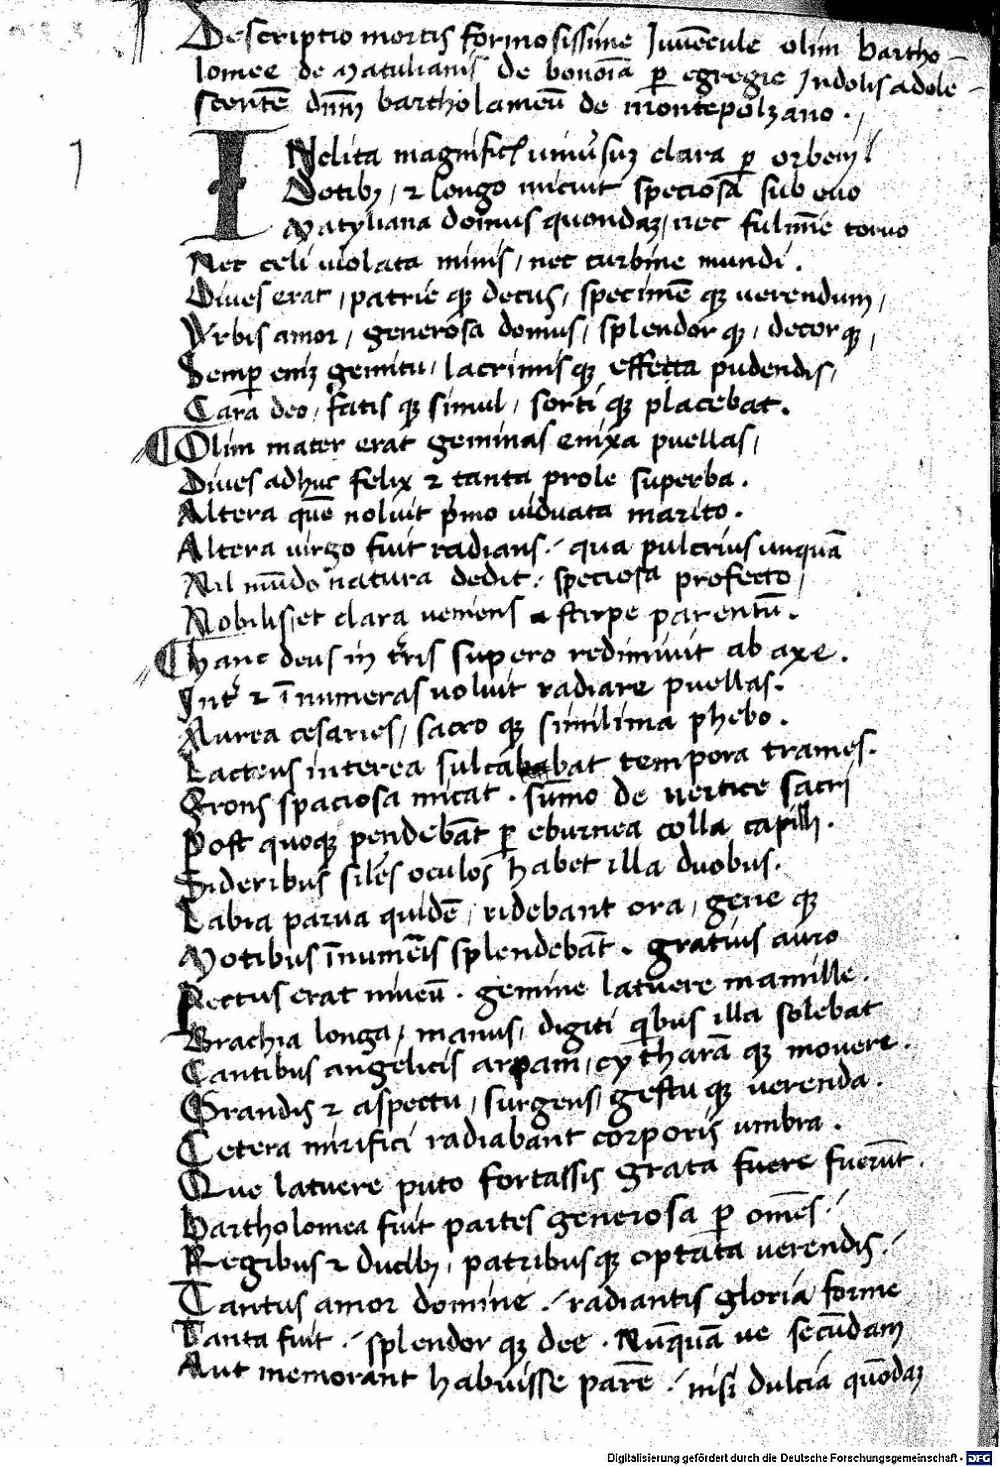 Descriptio mortis formosissime Juuēcule olim bartho-
lomee de Matulianis de bononīa ꝑ egregie Indolis adole-
scentē dnm̄ bartholameū de montepolzano.
INclita magnifici uniu'suꝫ clara ꝑ orbem
Dotibꝫ, ⁊ longo micuit speciosa sub euo
Matyliana domus quondaꝫ, nec fulmīe toruo
Nec celi uiolata minis, nec turbine mundi.
Diues erat, patrie qꝫ decus, specimē qꝫ uerendum,
Vrbis amor, generosa domus, splendor qꝫ, decor qꝫ,
Semꝑ eniꝫ gemitu, lacrimis qꝫ effecta pudendis,
Cara deo, fatis qꝫ simul, sorti qꝫ placebat.
Olim mater erat geminas enixa puellas,
Diues adhuc felix ⁊ tanta prole superba.
Altera quē noluit pͥmo uiduata marito.
Altera uirgo fuit radians. qua pulcrius unquā
Nil mūdo natura dedit. speciosa profecto,
Nobilis, et clara ueniens a stirpe parentū.
Hanc deus in tr̄is supero redimiuit ab axe.
Int' ⁊ īnumeras uoluit radiare puellas.
Aurea cesaries, sacro qꝫ simillima phebo.
Lacteus interea sulcabat tempora trames.
Frons spaciosa micat. sūmo de uertice sacri
Post quoqꝫ pendebāt ꝑ eburnea colla capilli.
Sideribus sil'es oculos habet illa duobus.
Labia parua quidē, ridebant ora, gene qꝫ
Motibus īnumēis splendebāt. gratius auro
Pectus erat niueū. gemine latuere mamille.
Brachia longa, manus, digiti qͥbus illa solebat
Cantibus angelicis arpam, cytharā qꝫ mouere.
Grandis ⁊ aspectu, surgens, gestu qꝫ uerenda.
Cetera mirifici radiabant corporis umbra.
Que latuere puto fortassis grata fuere fuerūt.
Bartholomea fuit partes generosa ꝑ omēs.
Regibus ⁊ ducibꝫ, patribus qꝫ optata uerendis.
Tantus amor domine. radiantis gloria forme
Tanta fuit. splendor qꝫ dee. Nūquā ue secūdam
Aut memorant habuisse parē. nisi dulcia quōdaꝫ
Digitalisierung gefördert durch die Deutsche Forschungsgemeinschaft - DFG